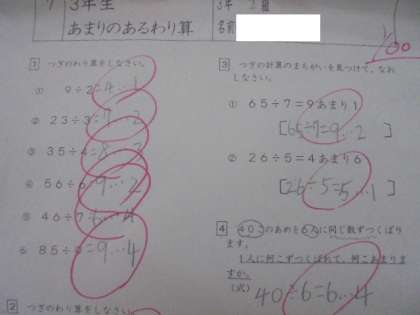 3年生
あまりのあるわり算
3年 2組
名前
100
1 つぎのわり算をしなさい。
① 9÷2=4…1
② 23÷3=7…2
③ 35÷4=8…3
④ 56÷6=9…2
⑤ 46÷7=6…4
⑥ 85÷9=9…4
2 つぎのわり算をしなさい。
3 つぎの計算のまちがいを見つけて、なお
しなさい。
① 65÷7=9あまり1
[65÷7=9…2]
② 26÷5=4あまり6
[26÷5=5…1]
4 40このあめを6人に同じ数ずつくばり
ます。
1人に何こずつくばれて、何こあまりま
すか。
(式) 40÷6=6…4